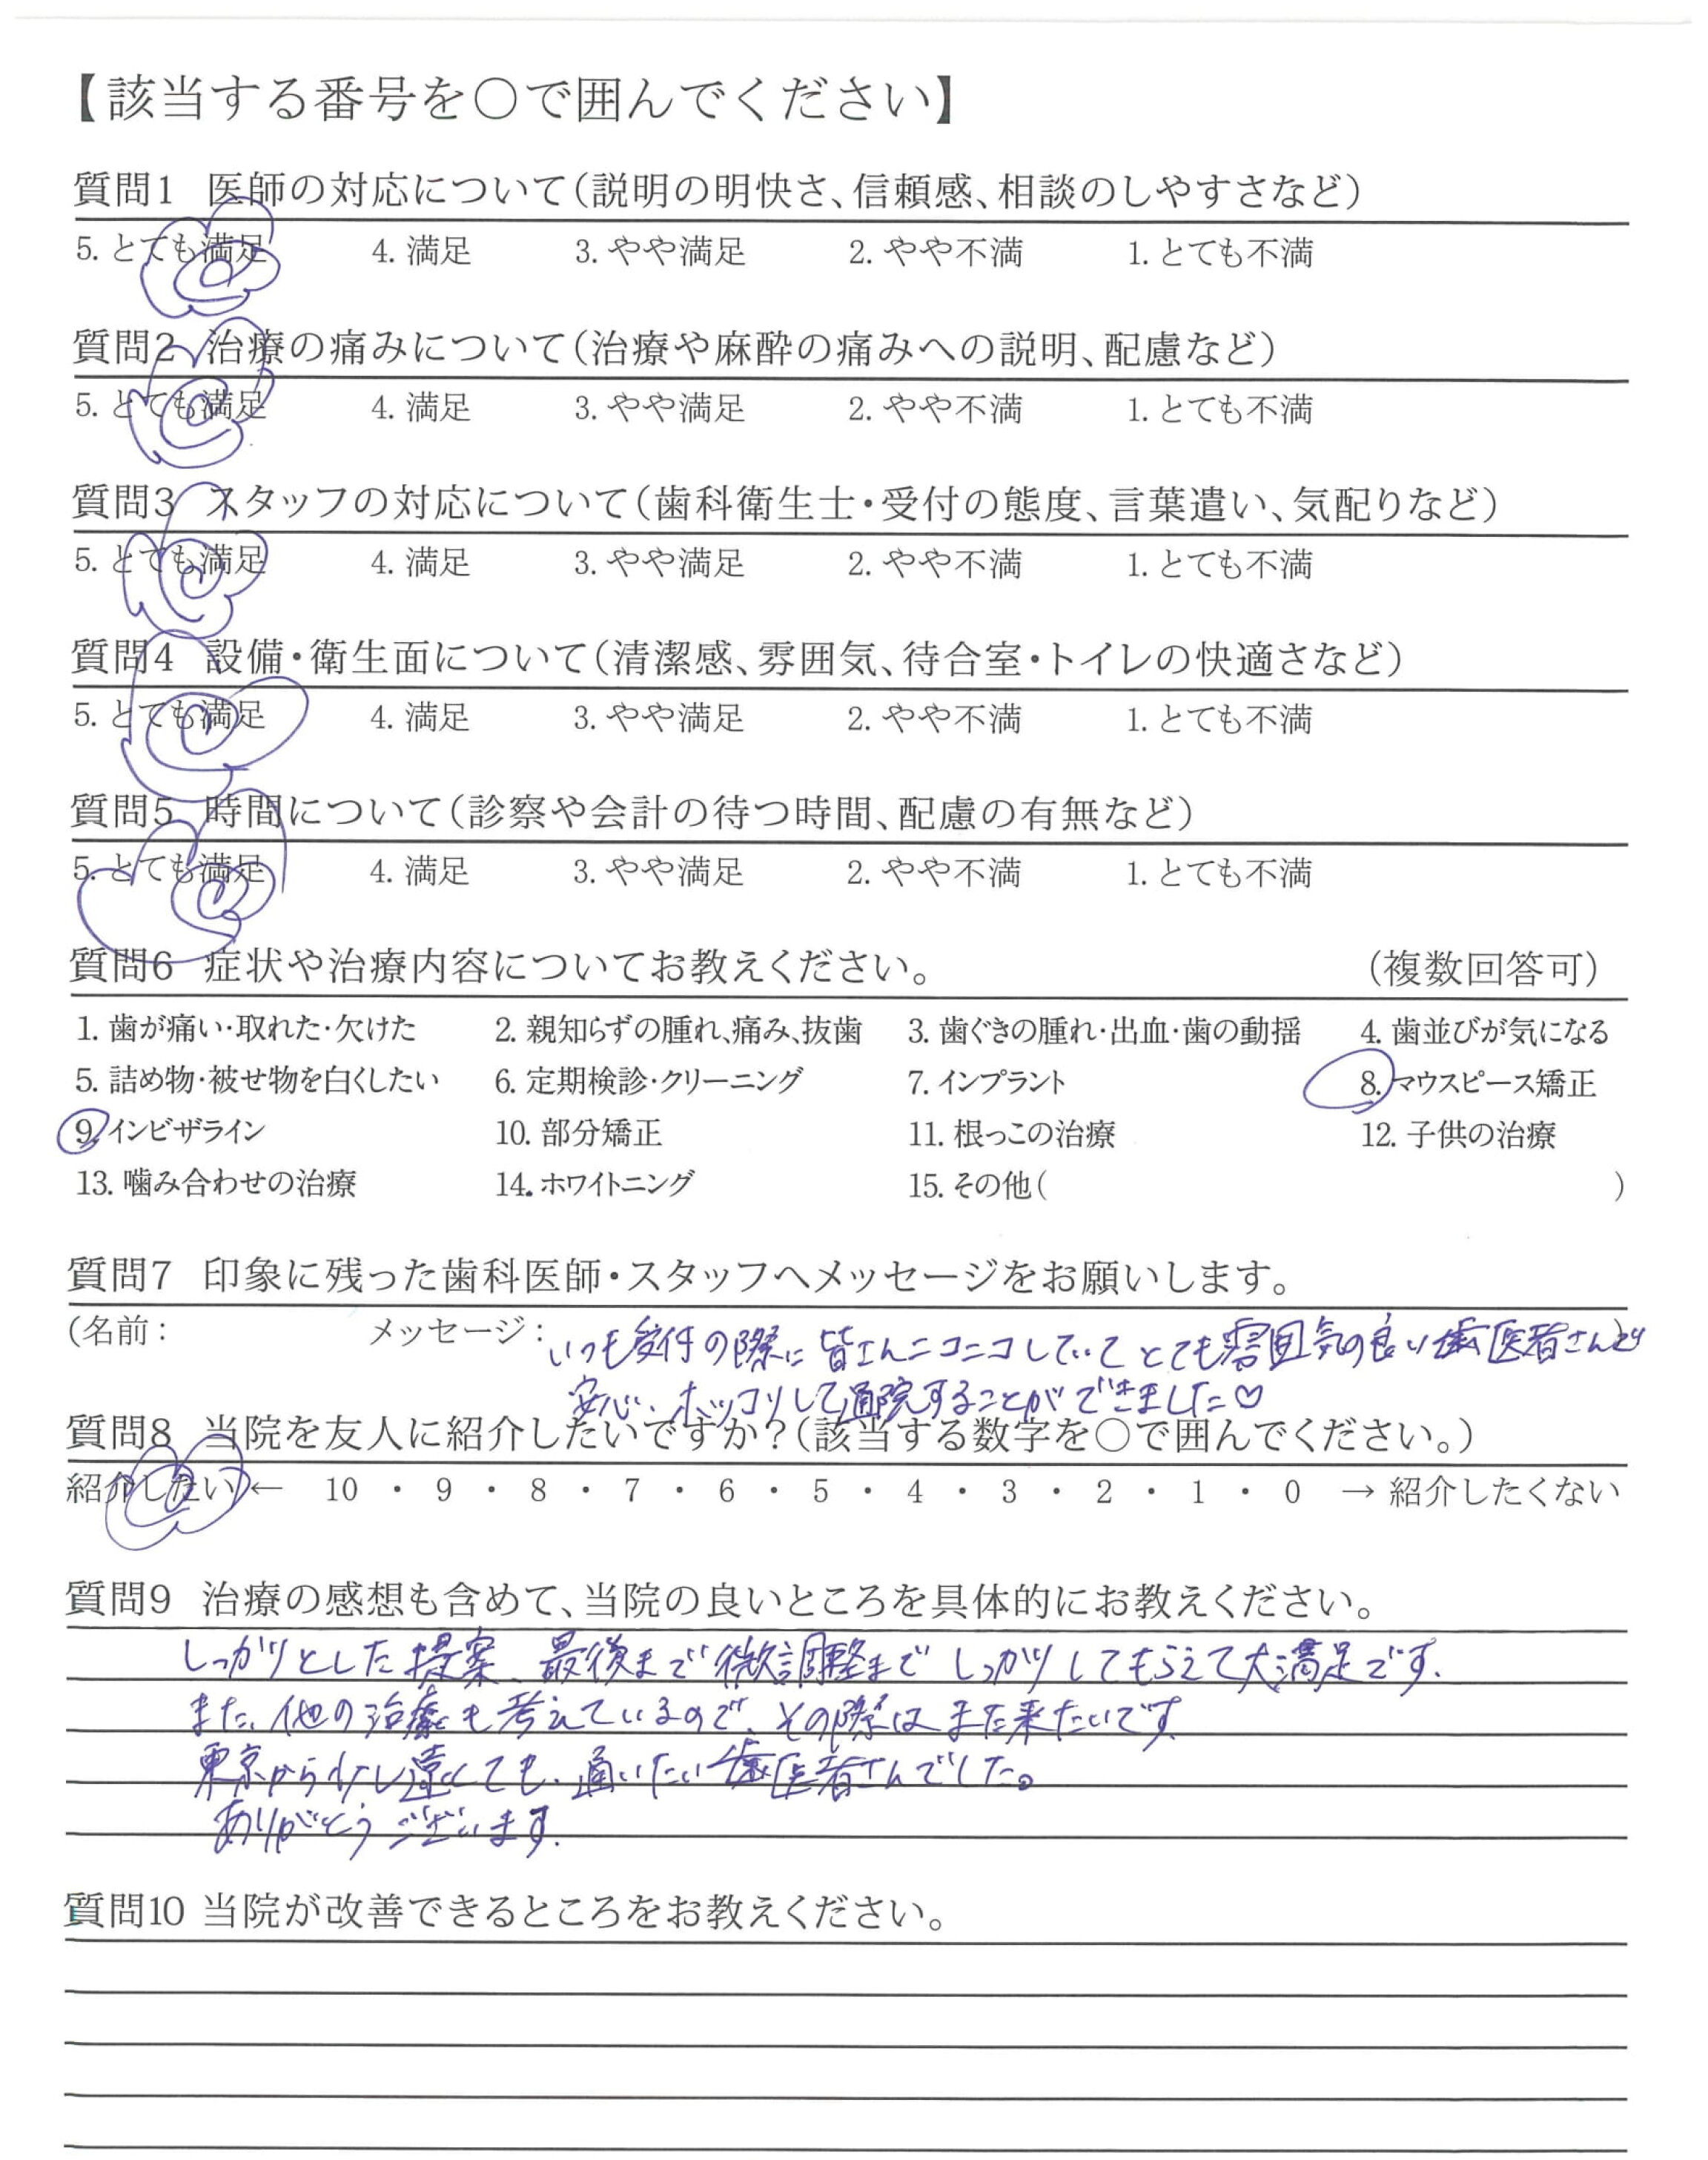 【該当する番号を○で囲んでください】
質問1 医師の対応について(説明の明快さ、信頼感、相談のしやすさなど)
5. とても満足 4. 満足 3. やや満足 2. やや不満 1. とても不満
質問2 治療の痛みについて(治療や麻酔の痛みへの説明、配慮など)
5. とても満足 4. 満足 3. やや満足 2. やや不満 1. とても不満
質問3 スタッフの対応について(歯科衛生士・受付の態度、言葉遣い、気配りなど)
5. とても満足 4. 満足 3. やや満足 2. やや不満 1. とても不満
質問4 設備・衛生面について(清潔感、雰囲気、待合室・トイレの快適さなど)
5. とても満足 4. 満足 3. やや満足 2. やや不満 1. とても不満
質問5 時間について(診察や会計の待つ時間、配慮の有無など)
5. とても満足 4. 満足 3. やや満足 2. やや不満 1. とても不満
質問6 症状や治療内容についてお教えください。 (複数回答可)
1. 歯が痛い・取れた・欠けた 2. 親知らずの腫れ、痛み、抜歯 3. 歯ぐきの腫れ・出血・歯の動揺 4. 歯並びが気になる
5. 詰め物・被せ物を白くしたい 6. 定期検診・クリーニング 7. インプラント 8. マウスピース矯正
9. インビザライン 10. 部分矯正 11. 根っこの治療 12. 子供の治療
13. 噛み合わせの治療 14. ホワイトニング 15. その他( )
質問7 印象に残った歯科医師・スタッフへメッセージをお願いします。
(名前: メッセージ: いつも受付の際に皆さんニコニコしていてとても雰囲気の良い歯医者さんで
安心、ホッコリして通院することができました♡
質問8 当院を友人に紹介したいですか?(該当する数字を○で囲んでください。)
紹介したい ← 10 ・ 9 ・ 8 ・ 7 ・ 6 ・ 5 ・ 4 ・ 3 ・ 2 ・ 1 ・ 0 → 紹介したくない
質問9 治療の感想も含めて、当院の良いところを具体的にお教えください。
しっかりとした提案、最後まで微調整までしっかりしてもらえて大満足です.
また、他の治療も考えているので、その際はまた来たいです
東京から少し遠くても、通いたい歯医者さんでした。
ありがとうございます.
質問10 当院が改善できるところをお教えください。